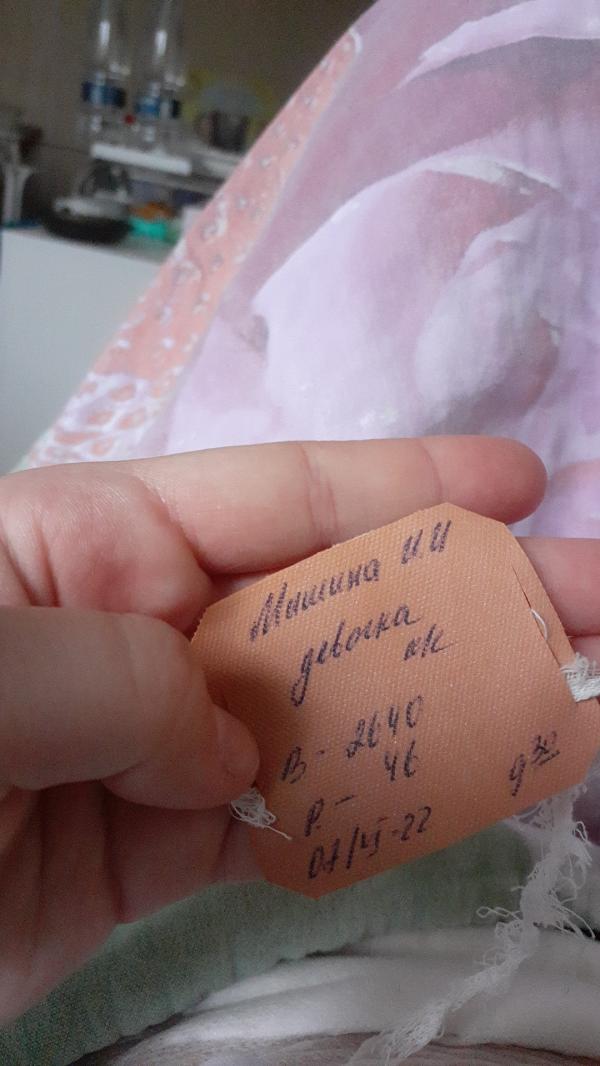 Мишина И.И
девочка
к/к
В - 2640
Р. - 46
07/VI-22 9³⁰